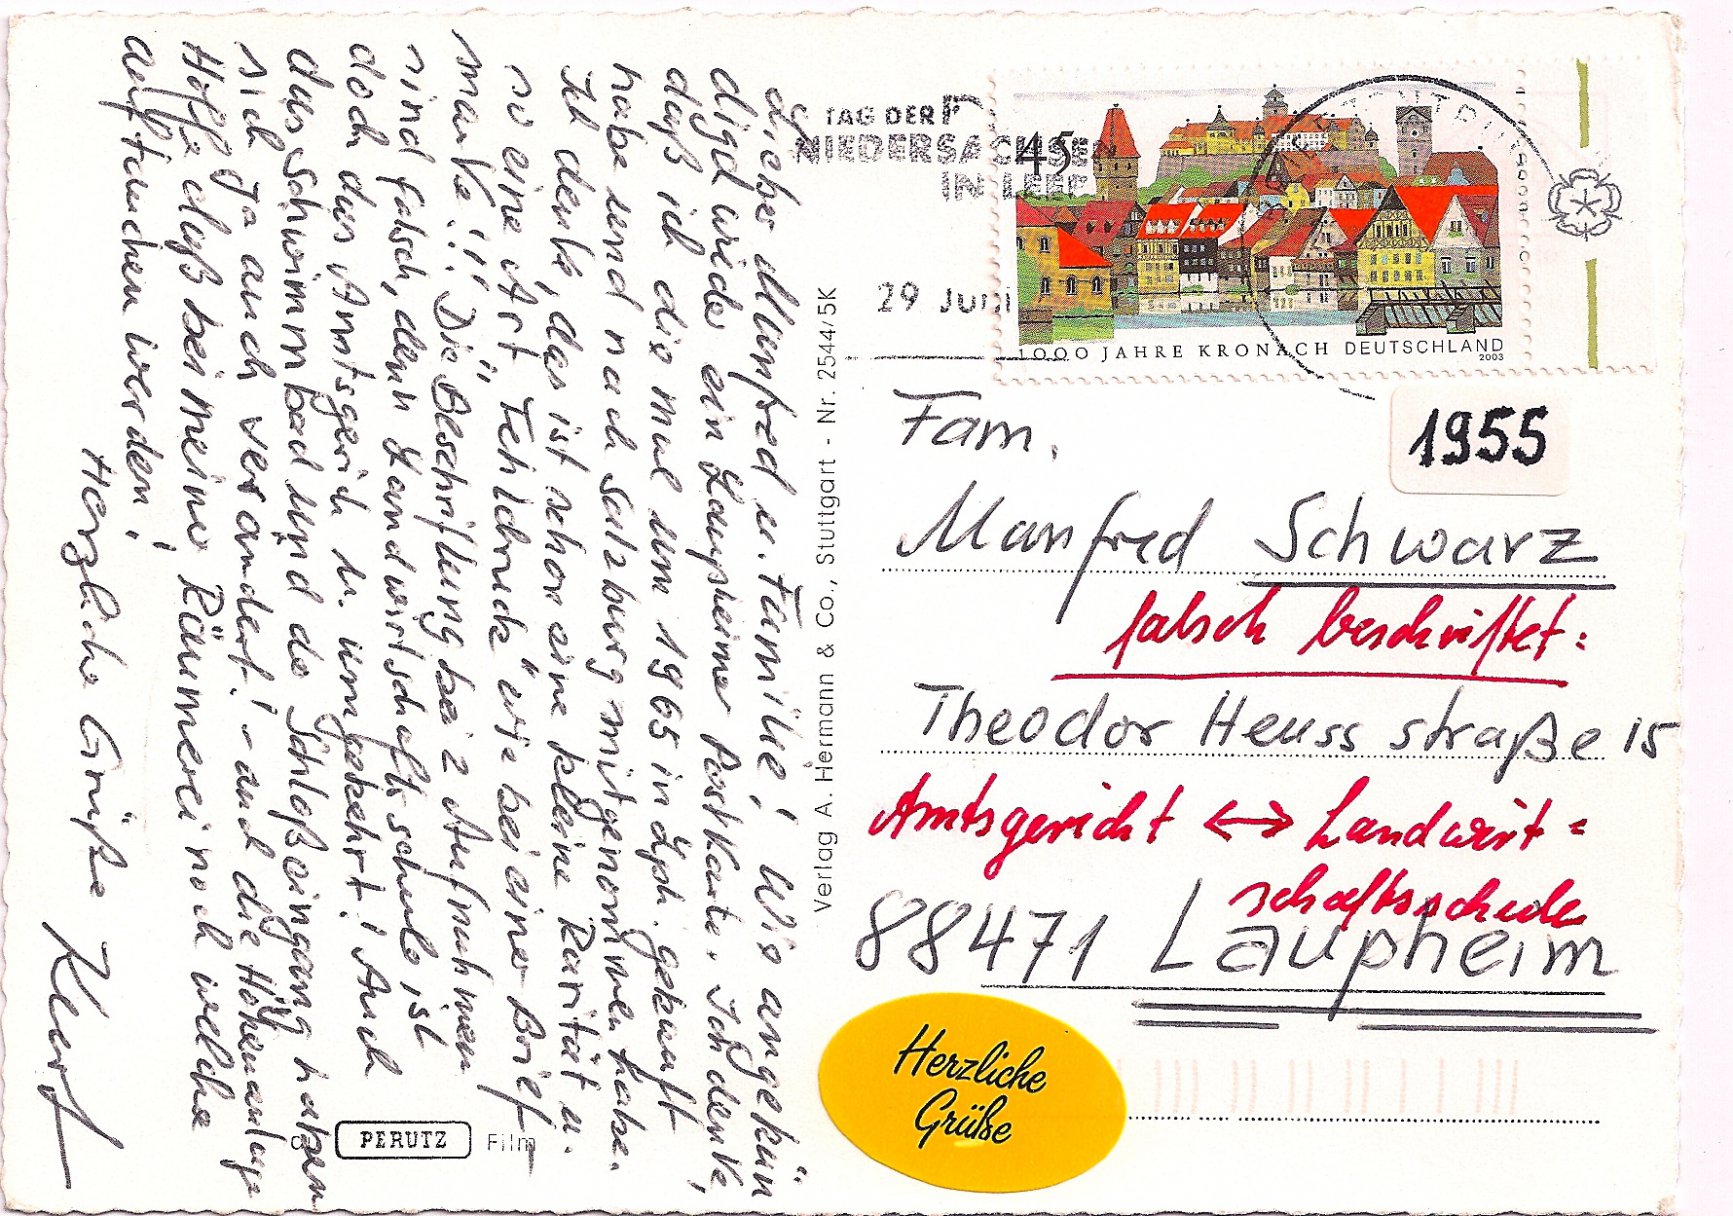 Lieber Manfred u. Familie! Wie angekün
digt wieder ein Laupheimer Postkarte. Ich denke,
daß ich die mal um 1965 in Lph. gekauft
habe und nach Salzburg mitgenommen habe.
Ich denke, das ist schon eine kleine Rarität u.
so eine Art "Fehldruck" wie bei einer Brief
marke!!! Die Beschriftung bei 2 Aufnahmen
sind falsch, denn Landwirtschaftsschule ist
doch das Amtsgerich u. umgekehrt! Auch
das Schwimmbad und de Schloßeingang haben
sich Ja auch verändert! - und die Höhenanlage
Hoffe daß bei meiner Räumerei noch welche
auftauchen werden!
Herzliche Grüße
Kurt
PERUTZ Film
Verlag A. Hermann & Co., Stuttgart - Nr. 2544/5K
TAG DER
NIEDERSACHSE
IN LEER
29 JUNI
45
1000 JAHRE KRONACH DEUTSCHLAND
2003
1955
Fam.
Manfred Schwarz
falsch beschriftet:
Theodor Heuss straße 15
Amtsgericht ↔ Landwirt =
schaftsschule
88471 Laupheim
Herzliche
Grüße